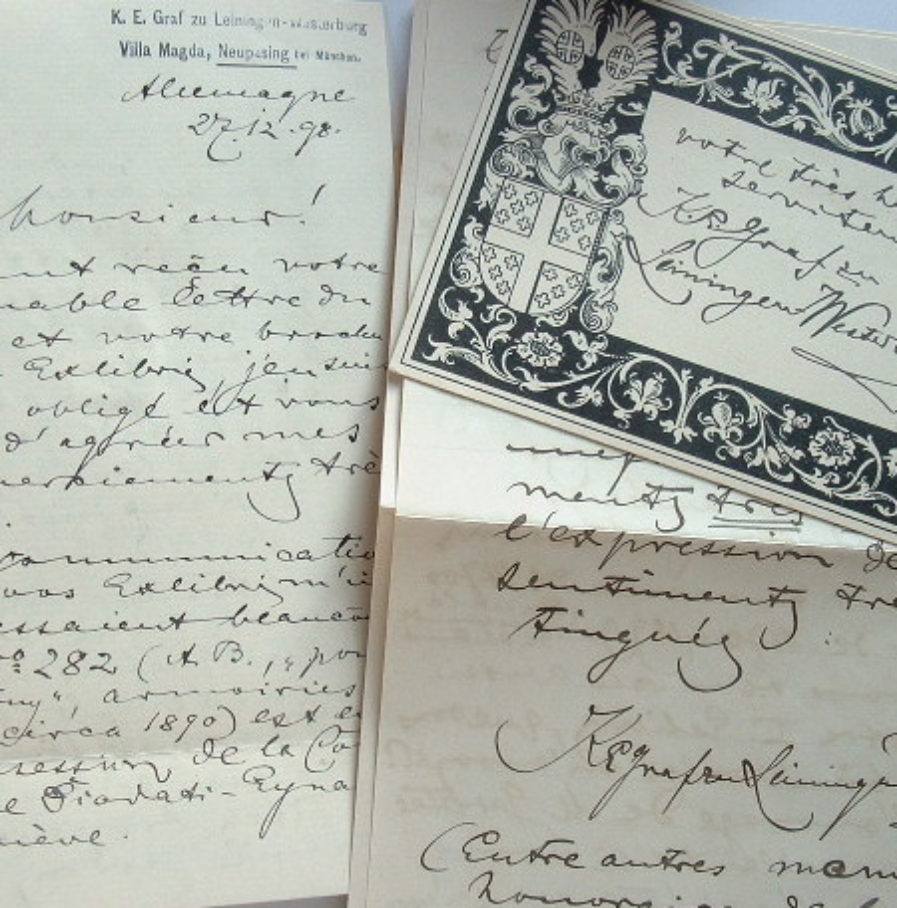 K. E. Graf zu Leiningen-Westerburg
Villa Magda, Neupasing bei München.
Allemagne
27.12.98.
Monsieur!
nt reçu votre
mable lettre du
et votre brochu
Exlibris, je suis
obligé et vous
d'agréer mes
merciements trè
communicatio
vos Exlibris m'i
essaient beauco
No 282 (A. B., „por
ny“, armoiries
circa 1890) est e
ssession de la Co
e Diodati-Eyna
nève.
votre très h
serviteu
K. E. Graf zu
Leiningen Wester
ments très
l'expression de
sentiments tre
tingués
KEGraf zu Leiningen
(Entre autres mem
honoraire de l